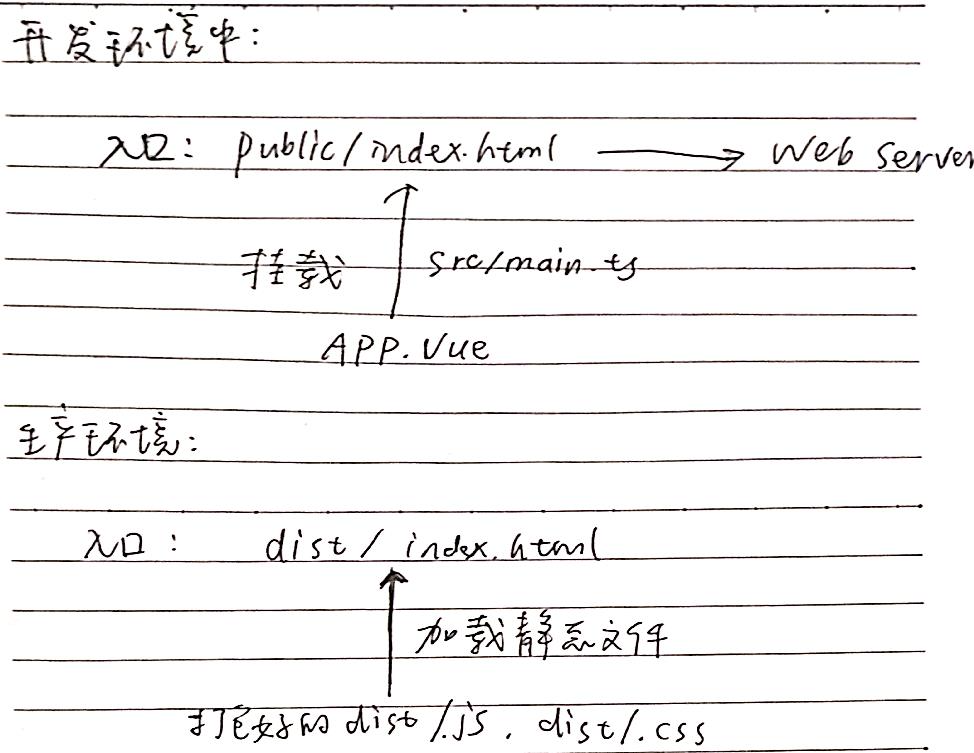 开发环境中：
入口： public/index.html → Web Server
挂载 src/main.ts
APP.Vue
生产环境：
入口： dist/index.html
加载静态文件
打包好的dist/.js, dist/.css